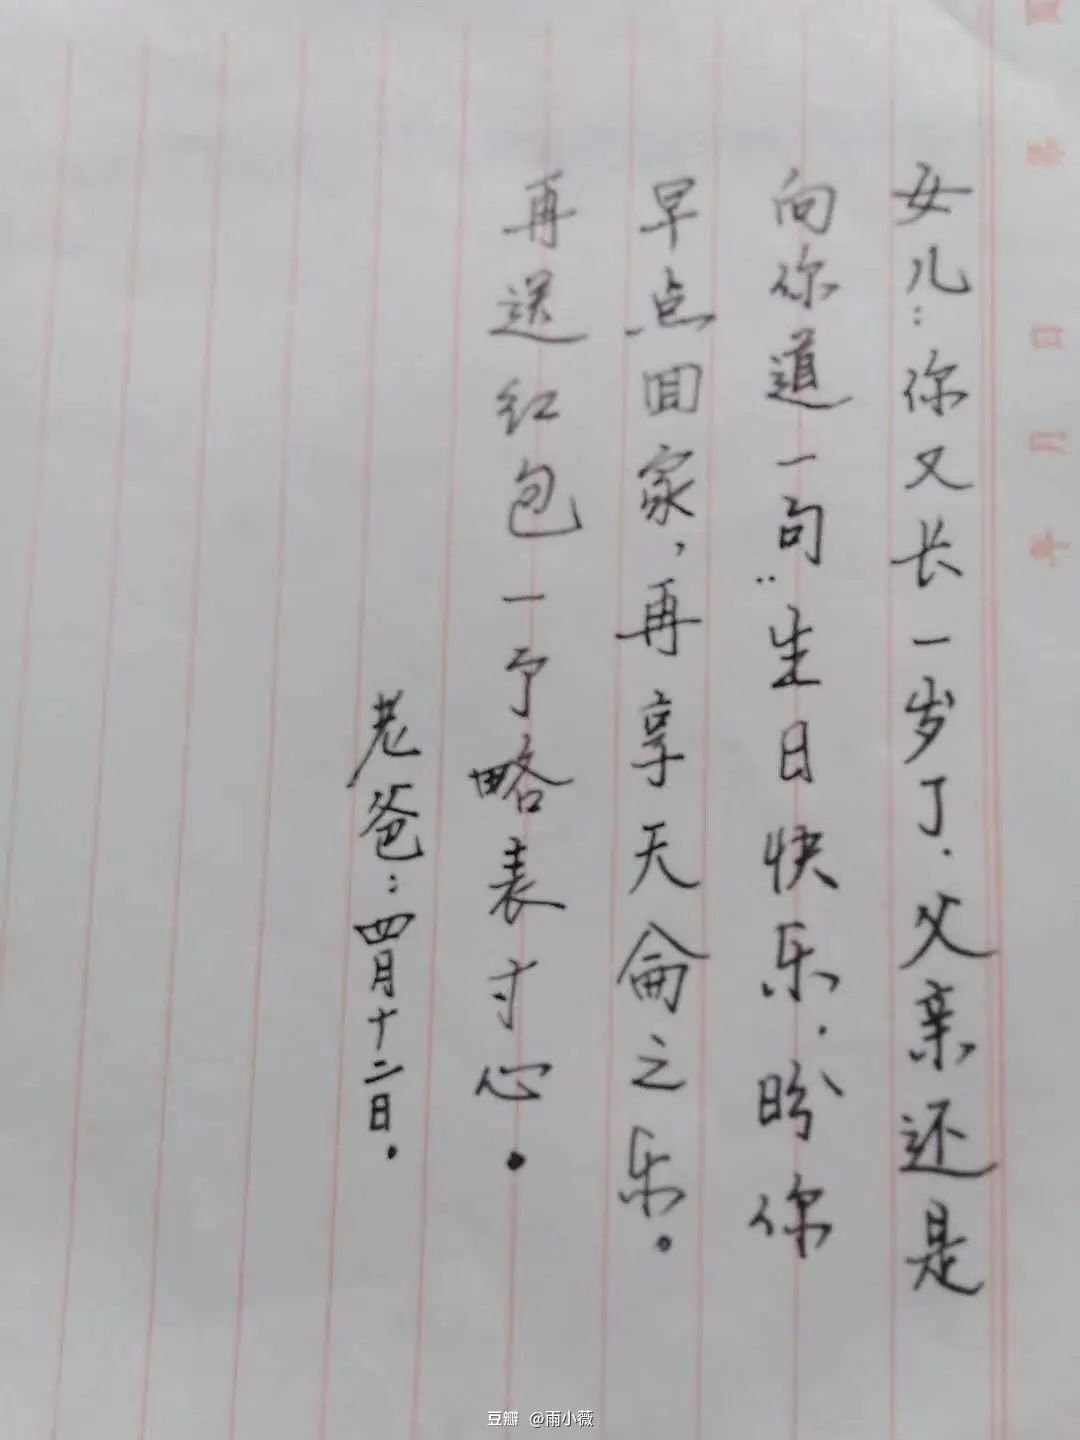 女儿：你又长一岁了.父亲还是
向你道一句：生日快乐.盼你
早点回家，再享天侖之乐。
再送红包一予略表寸心.
老爸：四月十二日.
年 月 日
豆瓣 @雨小薇